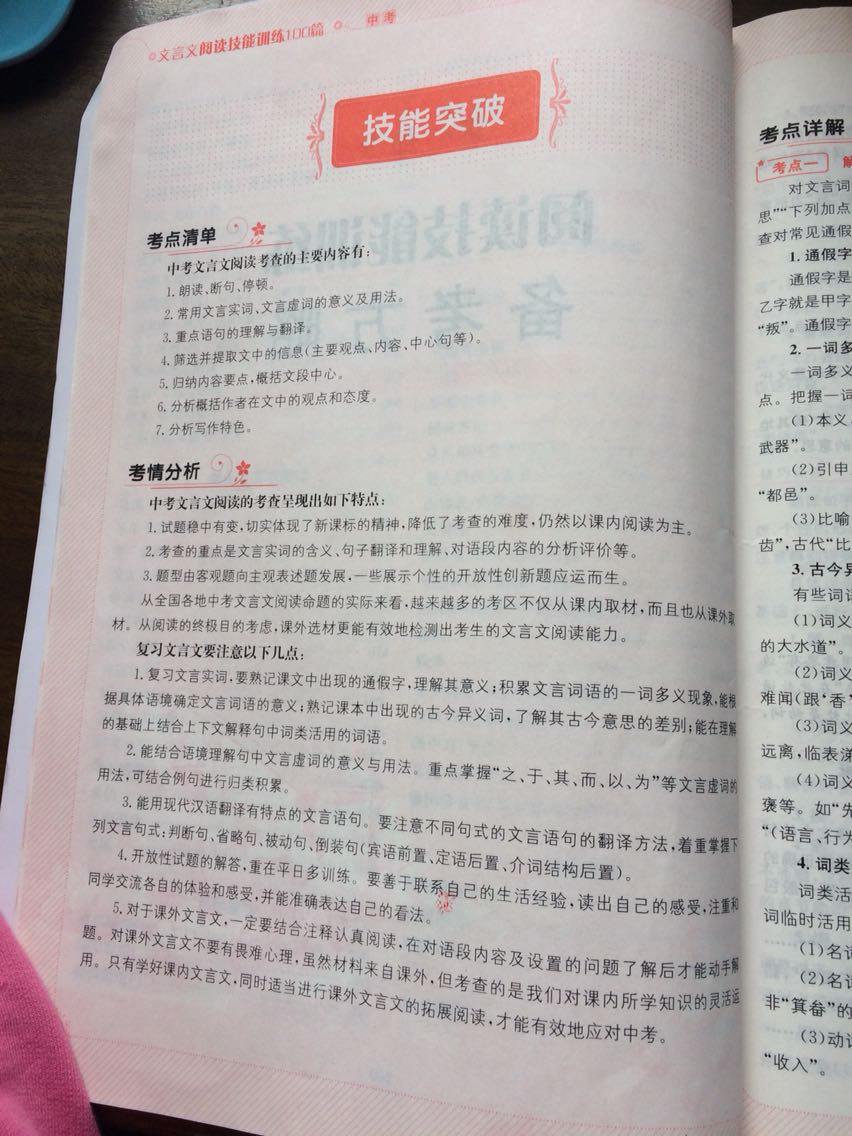 文言文阅读技能训练100篇 中考
技能突破
考点清单
中考文言文阅读考查的主要内容有:
1.朗读、断句、停顿。
2.常用文言实词、文言虚词的意义及用法。
3.重点语句的理解与翻译。
4.筛选并提取文中的信息(主要观点、内容、中心句等)。
5.归纳内容要点,概括文段中心。
6.分析概括作者在文中的观点和态度。
7.分析写作特色。
考情分析
中考文言文阅读的考查呈现出如下特点:
1.试题稳中有变,切实体现了新课标的精神,降低了考查的难度,仍然以课内阅读为主。
2.考查的重点是文言实词的含义、句子翻译和理解、对语段内容的分析评价等。
3.题型由客观题向主观表述题发展,一些展示个性的开放性创新题应运而生。
从全国各地中考文言文阅读命题的实际来看,越来越多的考区不仅从课内取材,而且也从课外取
材。从阅读的终极目的考虑,课外选材更能有效地检测出考生的文言文阅读能力。
复习文言文要注意以下几点:
1.复习文言实词,要熟记课文中出现的通假字,理解其意义;积累文言词语的一词多义现象,能根
据具体语境确定文言词语的意义;熟记课本中出现的古今异义词,了解其古今意思的差别;能在理解
的基础上结合上下文解释句中词类活用的词语。
2.能结合语境理解句中文言虚词的意义与用法。重点掌握“之、于、其、而、以、为”等文言虚词的
用法,可结合例句进行归类积累。
3.能用现代汉语翻译有特点的文言语句。要注意不同句式的文言语句的翻译方法,着重掌握下
列文言句式:判断句、省略句、被动句、倒装句(宾语前置、定语后置、介词结构后置)。
4.开放性试题的解答,重在平日多训练。要善于联系自己的生活经验,读出自己的感受,注重和
同学交流各自的体验和感受,并能准确表达自己的看法。
5.对于课外文言文,一定要结合注释认真阅读,在对语段内容及设置的问题了解后才能动手解
题。对课外文言文不要有畏难心理,虽然材料来自课外,但考查的是我们对课内所学知识的灵活运
用。只有学好课内文言文,同时适当进行课外文言文的拓展阅读,才能有效地应对中考。
考点详解
考点一
对文言词
思”“下列加点
查对常见通假
1.通假字
通假字是
乙字就是甲字
“叛”。通假字
2.一词多
一词多义
点。把握一词
(1)本义
武器”。
(2)引申
“都邑”。
(3)比喻
齿”,古代“比
3.古今异
有些词语
(1)词义
的大水道”。
(2)词义
难闻(跟‘香’
(3)词义
远离,临表涕
(4)词义
褒等。如“先
“(语言、行为
4.词类
词类活
词临时活用
(1)名词
(2)名词
非“箕畚”的
(3)动词
“收入”。